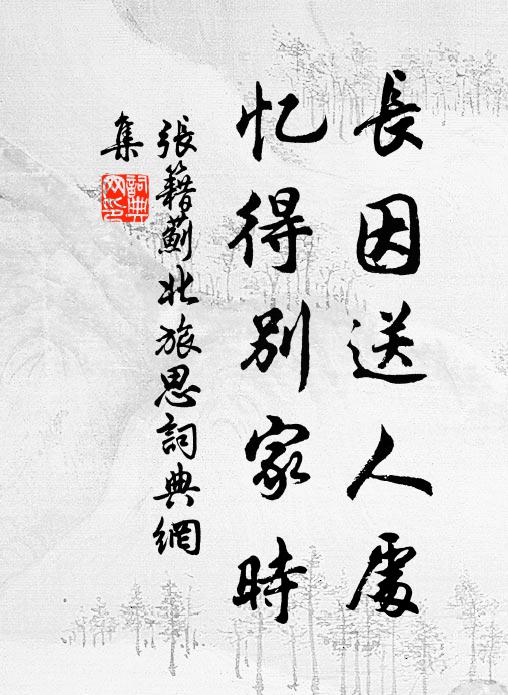 長因送人處
忆得别家時
張籍薊北旅思詞典網
集
詞典网印